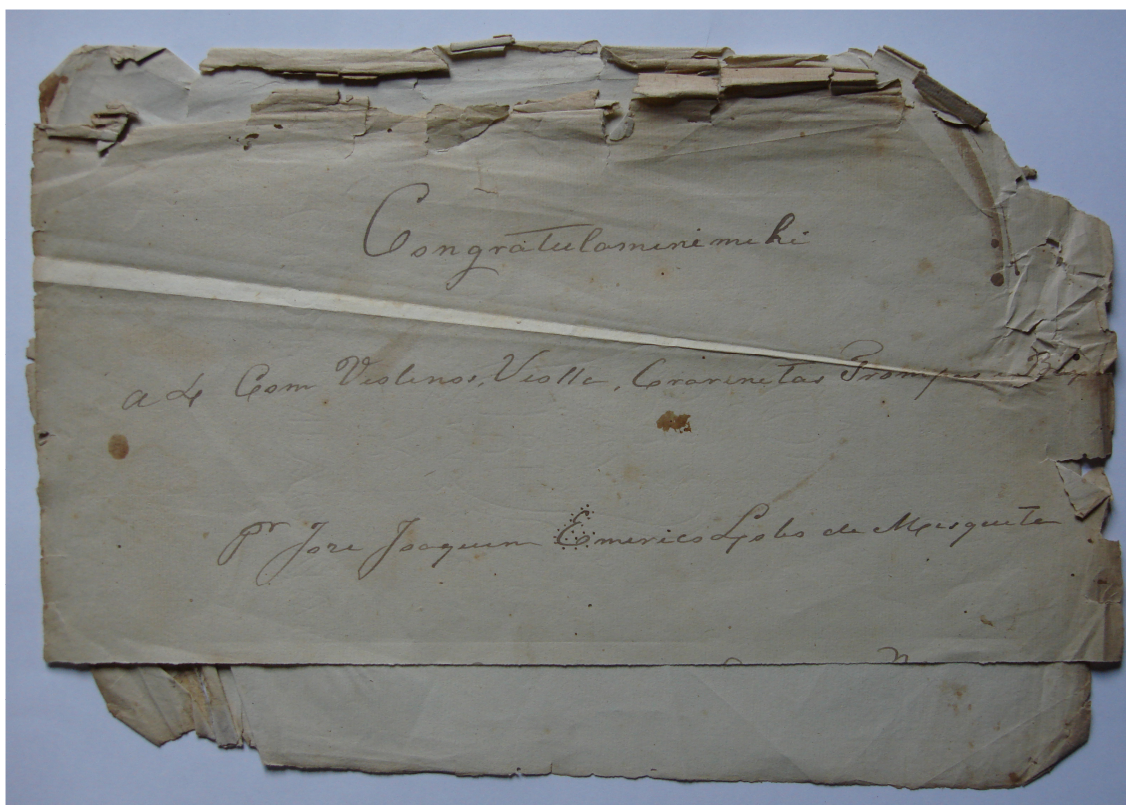 Congratulamini mihi
a 4 Com Violinos, Violla, Cravinetas Trompas e
Pr Joze Joaquim Emerico Lobo de Mesquita